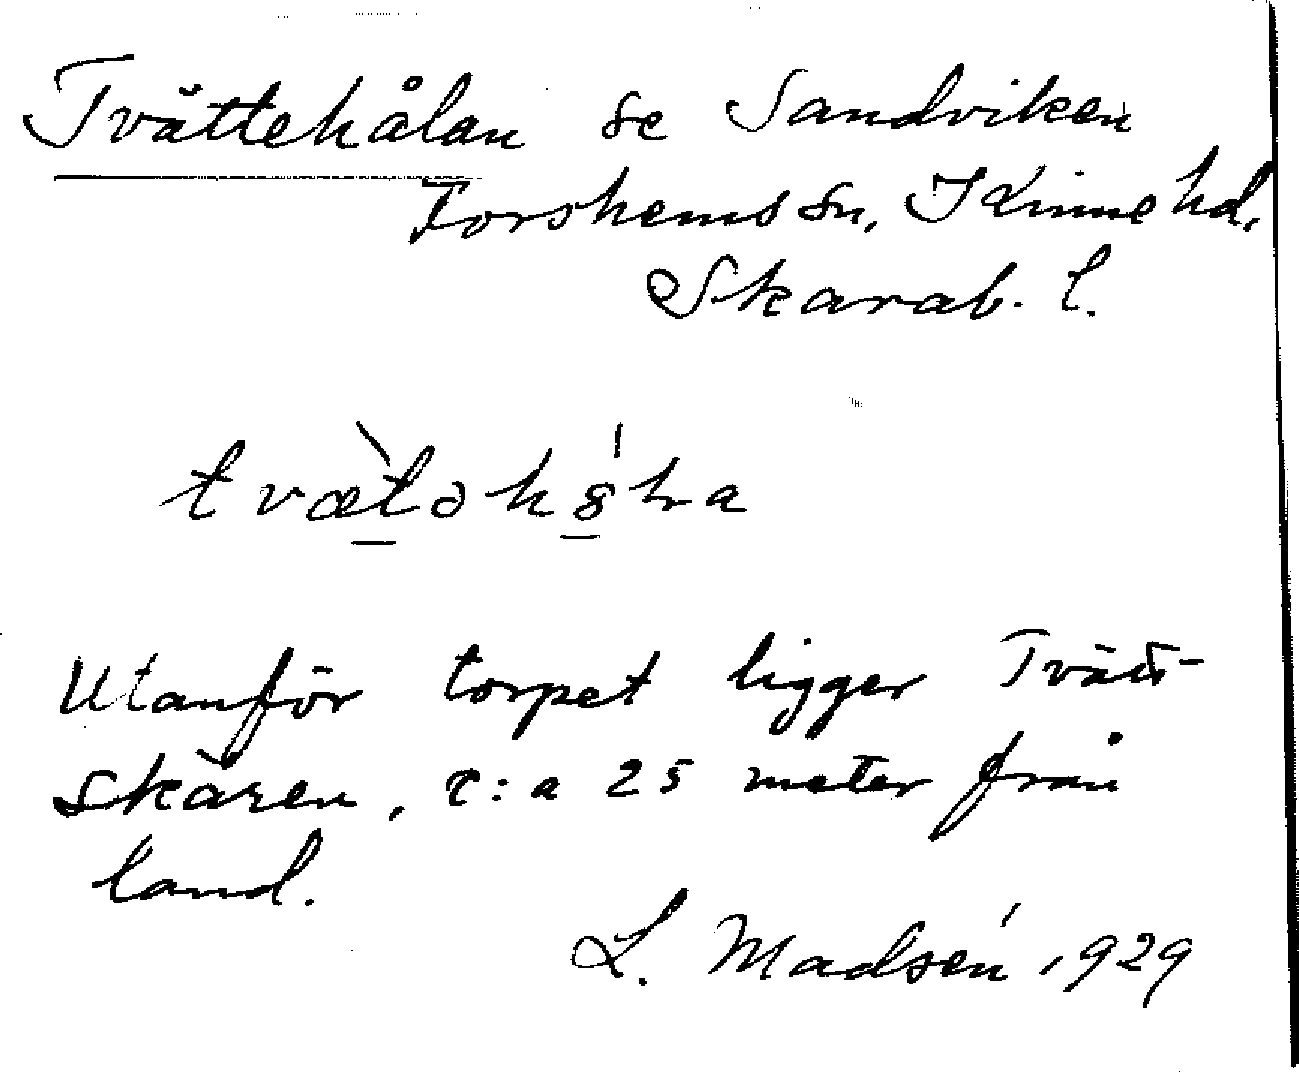 Tvättehålan se Sandviken
Forshems sn, Kinne hd.
Skarab. l.
Utanför torpet ligger Tvätt-
skären, c:a 25 meter från
land.
L. Madsén 1929